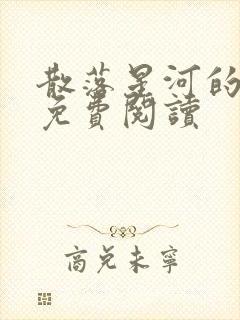 散落星河的
免費閱讀
商兌未寧